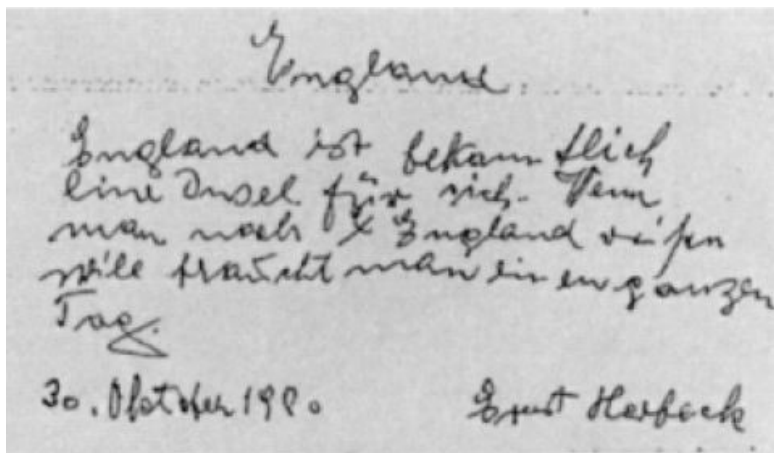 England
England ist bekanntlich
eine Insel für sich. Wenn
man nach England reisen
will braucht man einen ganzen
Tag.
30. Oktober 1980 Ernst Herbeck